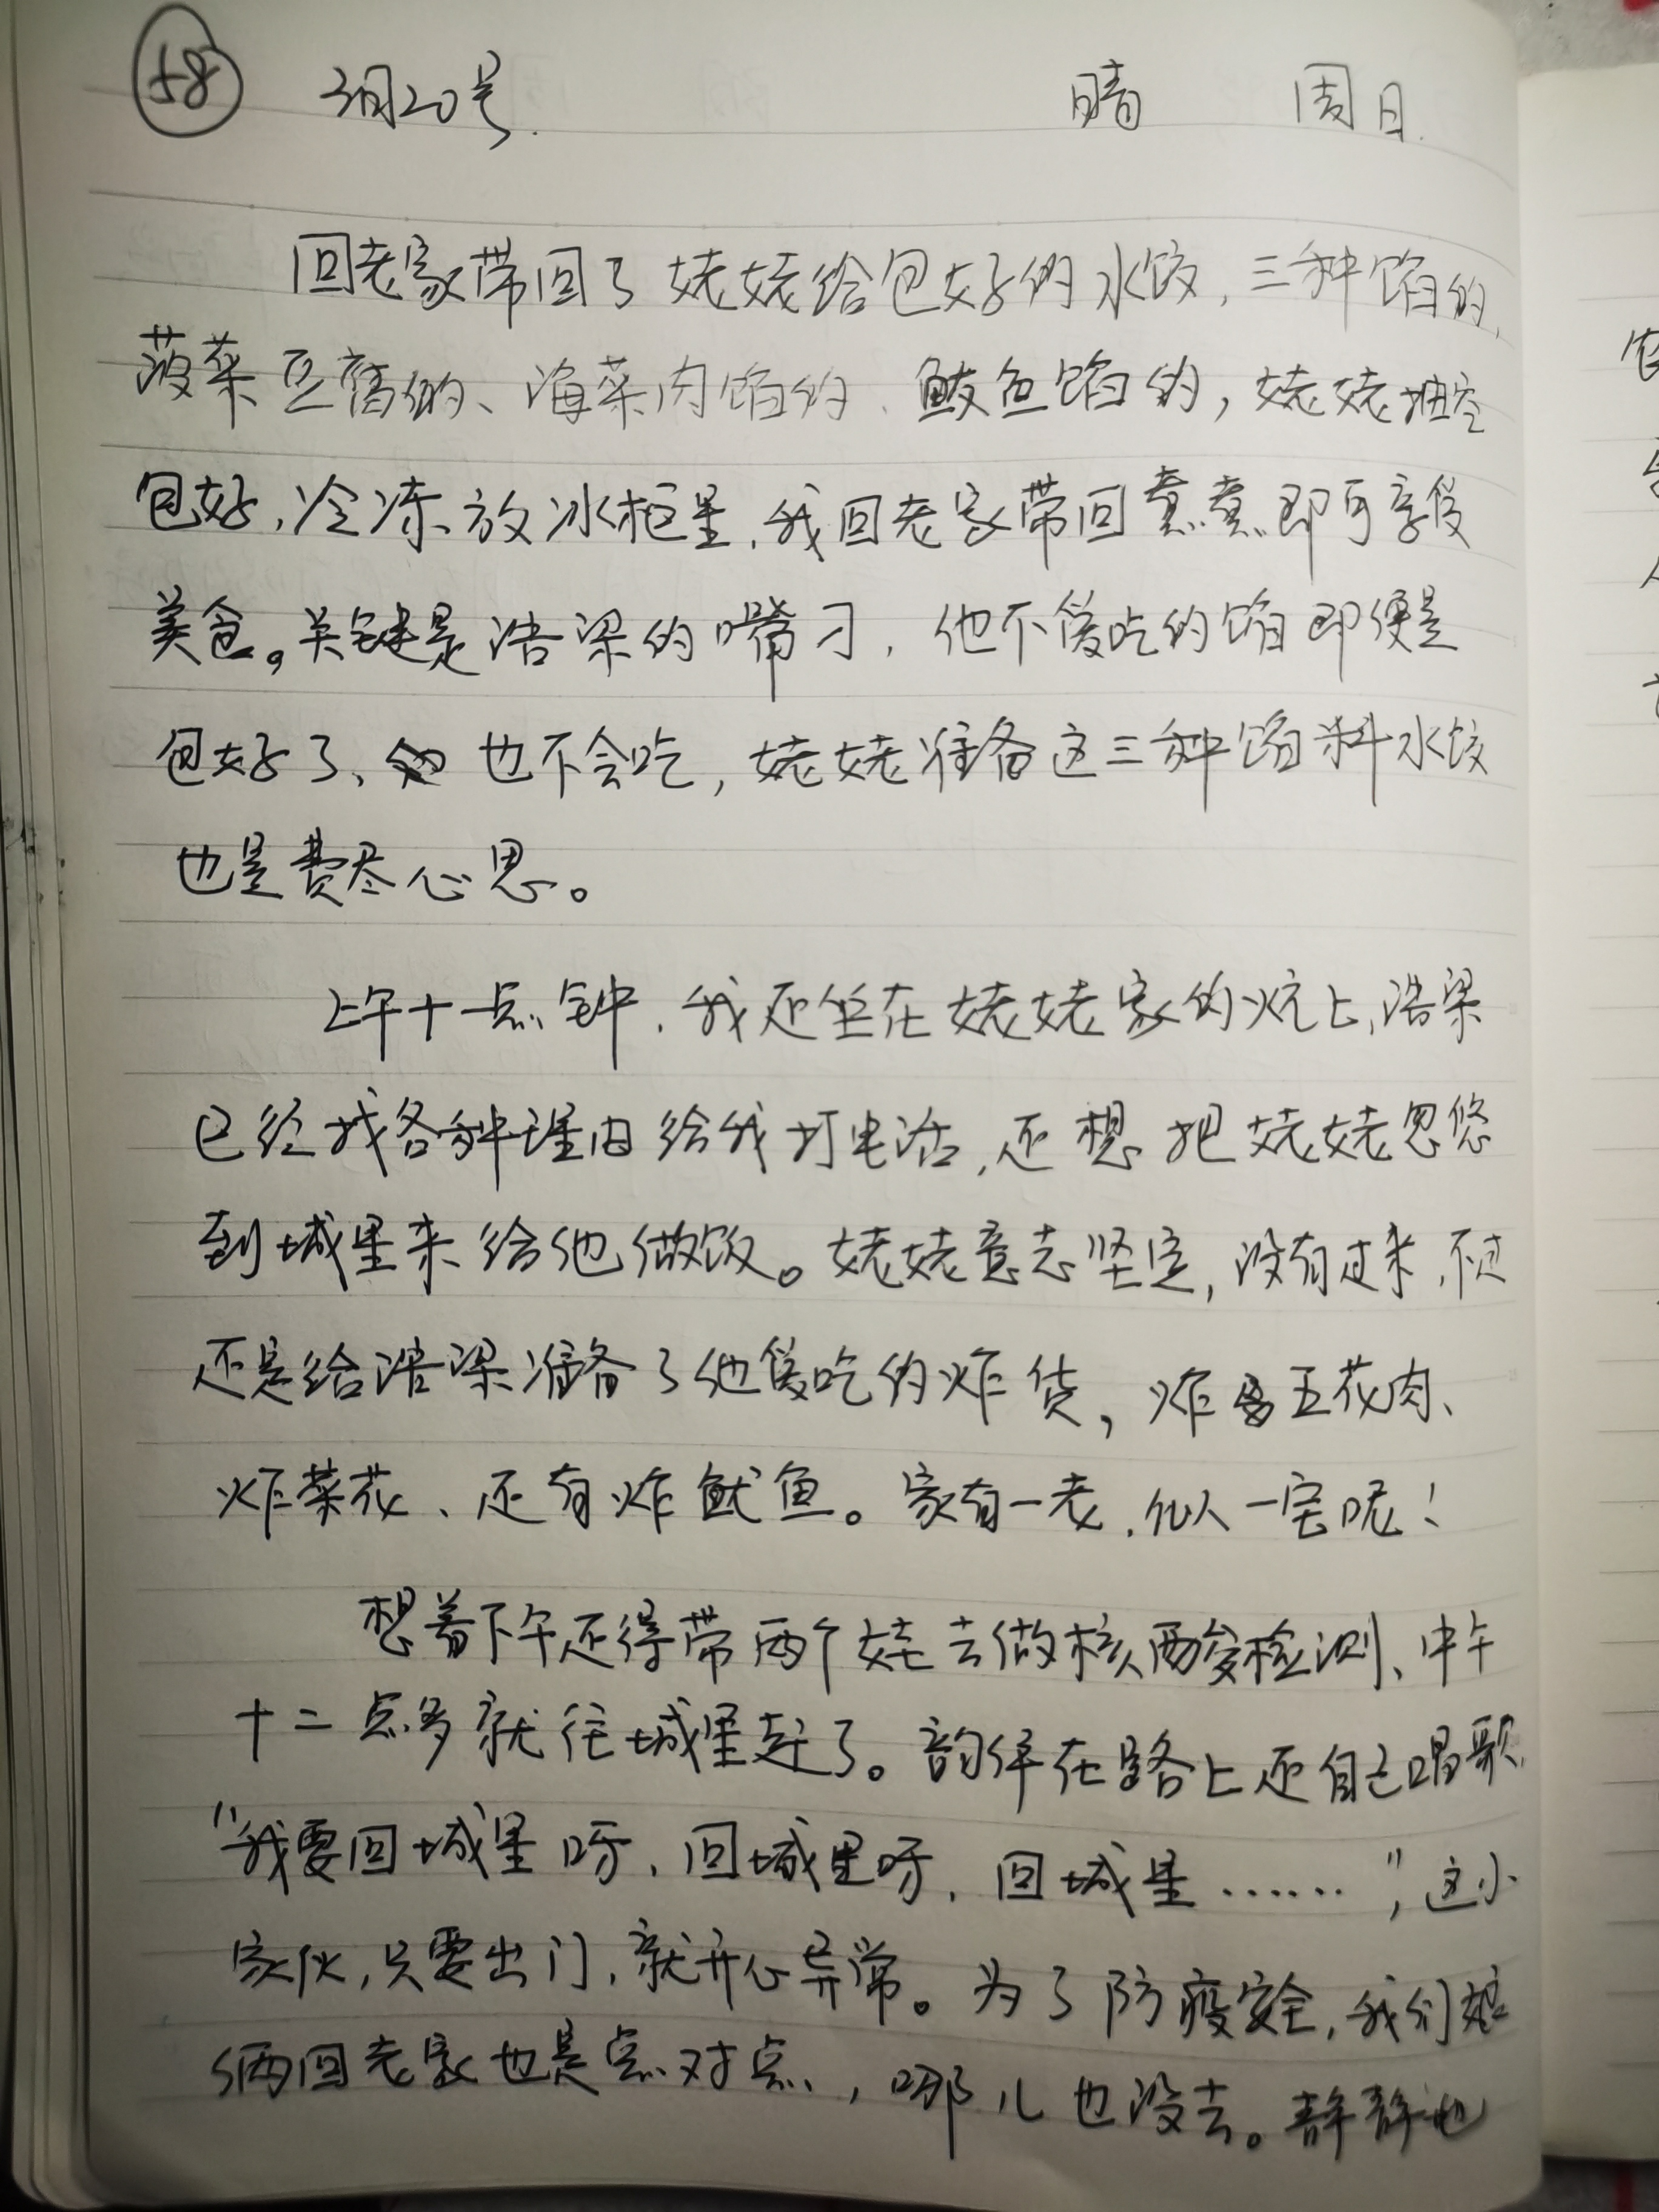 58 3月20号. 晴 周日.
回老家带回了姥姥给包好的水饺,三种馅的,
菠菜豆腐的、海菜肉馅的、鲅鱼馅的,姥姥抽空
包好,冷冻放冰柜里,我回老家带回煮煮即可享受
美食。关键是浩梁的嘴刁,他不爱吃的馅即便是
包好了、也不会吃,姥姥准备这三种馅料水饺
也是费尽心思。
上午十一点钟,我还坐在姥姥家的炕上,浩梁
已经找各种理由给我打电话,还想把姥姥忽悠
到城里来给他做饭。姥姥意志坚定,没有过来,不过
还是给浩梁准备了他爱吃的炸货,炸五花肉、
炸菜花、还有炸鱿鱼。家有一老,似一宝呢!
想着下午还得带两个娃去做核酸检测、中午
十二点多就往城里赶了。韵伊在路上还自己唱歌,
"我要回城里呀,回城里呀,回城里……",这小
家伙,只要出门,就开心异常。为了防疫安全,我们娘
俩回老家也是点对点,哪儿也没去。静静地